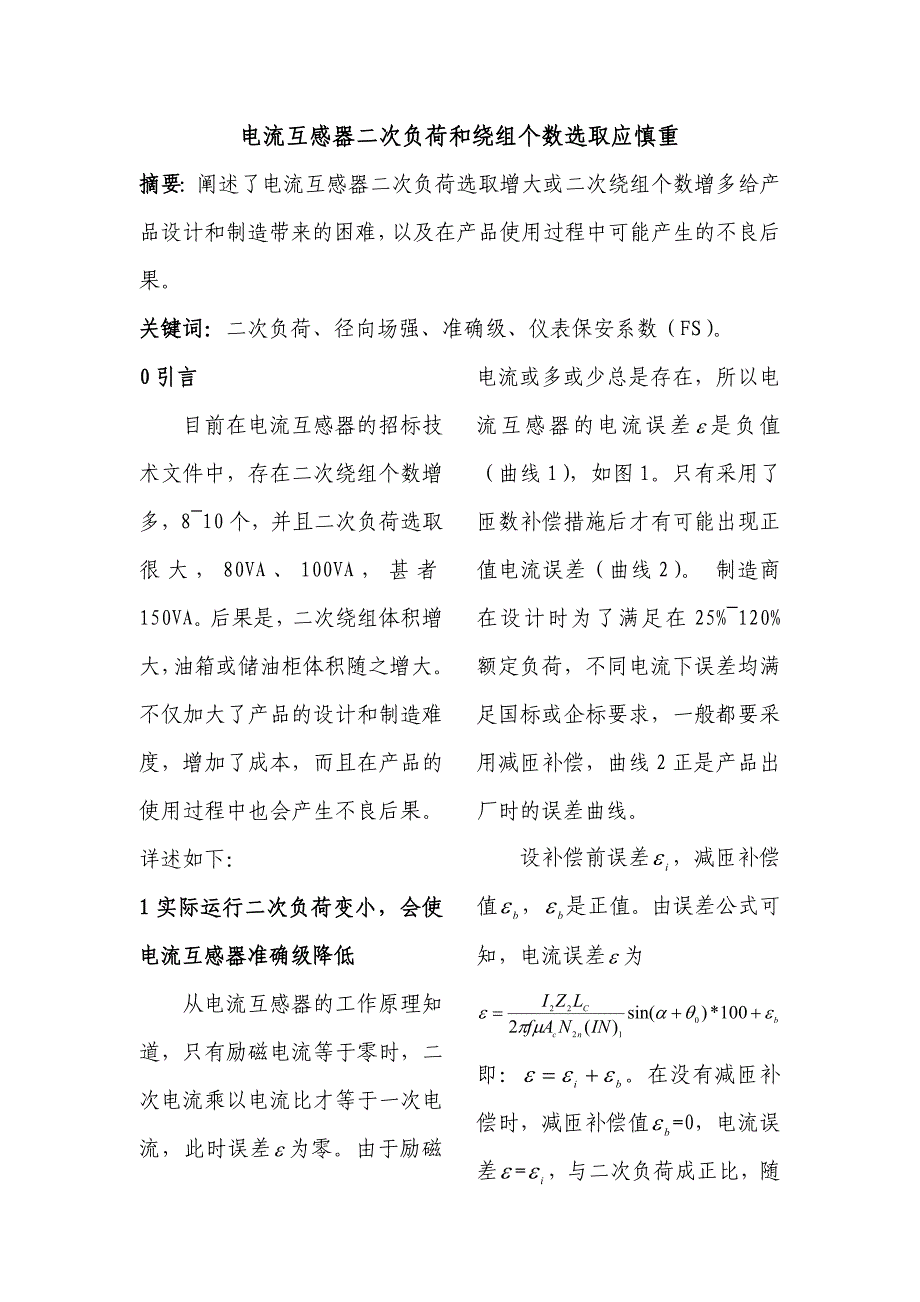 电流互感器二次负荷和绕组个数选取应慎重
摘要：阐述了电流互感器二次负荷选取增大或二次绕组个数增多给产
品设计和制造带来的困难，以及在产品使用过程中可能产生的不良后
果。
关键词：二次负荷、径向场强、准确级、仪表保安系数（FS）。
0 引言
目前在电流互感器的招标技
术文件中，存在二次绕组个数增
多，8~10 个，并且二次负荷选取
很大，80VA、100VA，甚者
150VA。后果是，二次绕组体积增
大，油箱或储油柜体积随之增大。
不仅加大了产品的设计和制造难
度，增加了成本，而且在产品的
使用过程中也会产生不良后果。
详述如下：
1 实际运行二次负荷变小，会使
电流互感器准确级降低
从电流互感器的工作原理知
道，只有励磁电流等于零时，二
次电流乘以电流比才等于一次电
流，此时误差ε为零。由于励磁
电流或多或少总是存在，所以电
流互感器的电流误差ε是负值
（曲线 1），如图 1。只有采用了
匝数补偿措施后才有可能出现正
值电流误差（曲线 2）。 制造商
在设计时为了满足在 25%~120%
额定负荷，不同电流下误差均满
足国标或企标要求，一般都要采
用减匝补偿，曲线 2 正是产品出
厂时的误差曲线。
设补偿前误差ε_i，减匝补偿
值ε_b，ε_b是正值。由误差公式可
知，电流误差ε为
ε = \frac{I_2 Z_2 L_C}{2πfμA_c N_{2n}(IN)_1} sin(α + θ_0) * 100 + ε_b
即：ε = ε_i + ε_b。在没有减匝补
偿时，减匝补偿值ε_b=0，电流误
差ε=ε_i，与二次负荷成正比，随